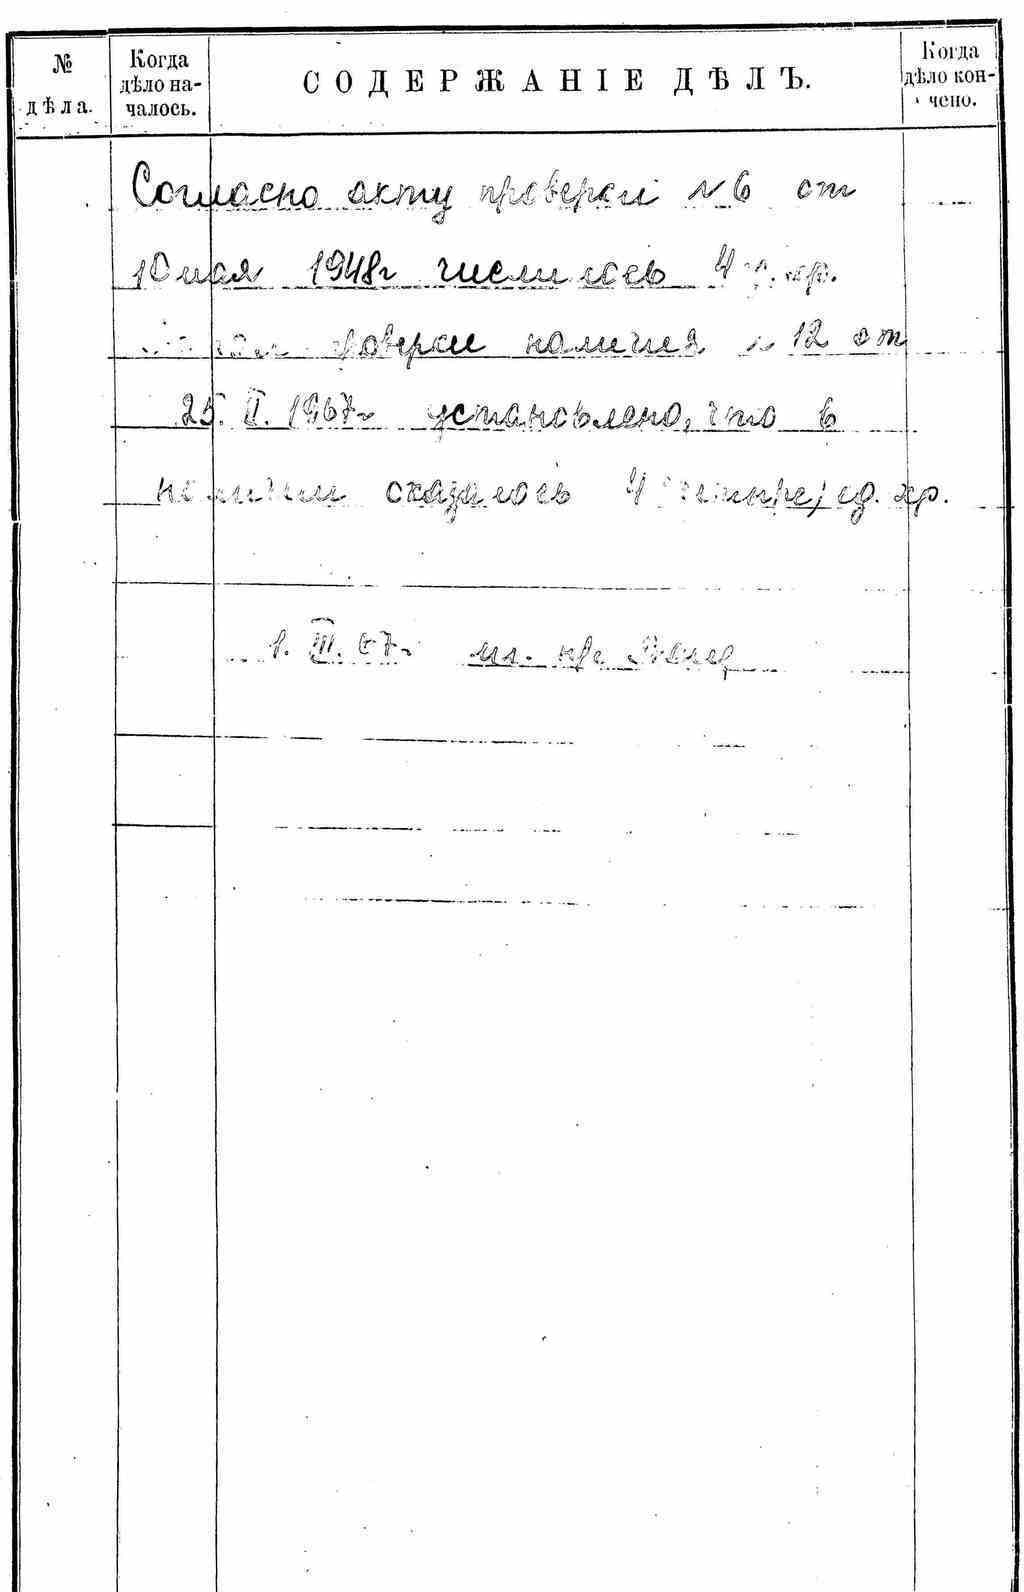 № дѣла.
Когда дѣло на-
чалось.
СОДЕРЖАНІЕ ДѢЛЪ.
Когда дѣло кон-
чено.
Согласно акту проверки №6 от
10 мая 1948г числилось 4 ед. хр.
проверки наличия № 12 от
25. II. 1967г установлено, что в
наличии оказалось 4 (четыре) ед. хр.
1. III. 67г мл. н/с